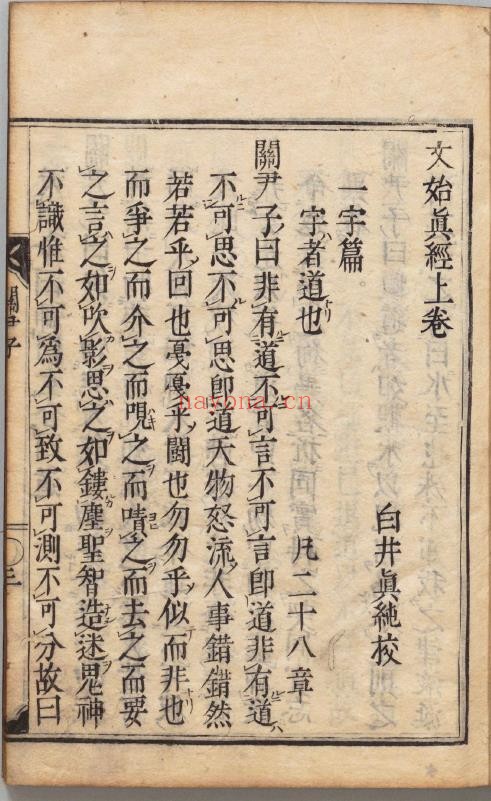 文始眞經上卷
白井眞純校
一宇篇
宇者道也 凡二十八章
關尹子曰非有道不可言不可言卽道非有道
不可思不可思卽道天物怒流人事錯錯然
若若乎回也戞戞乎鬬也勿勿乎似而非也
而爭之而介之而哯之而嘖之而去之而要
之言之如吹影思之如鏤塵聖智造迷鬼神
不識惟不可爲不可致不可測不可分故曰
關尹子
三
hayona.cn